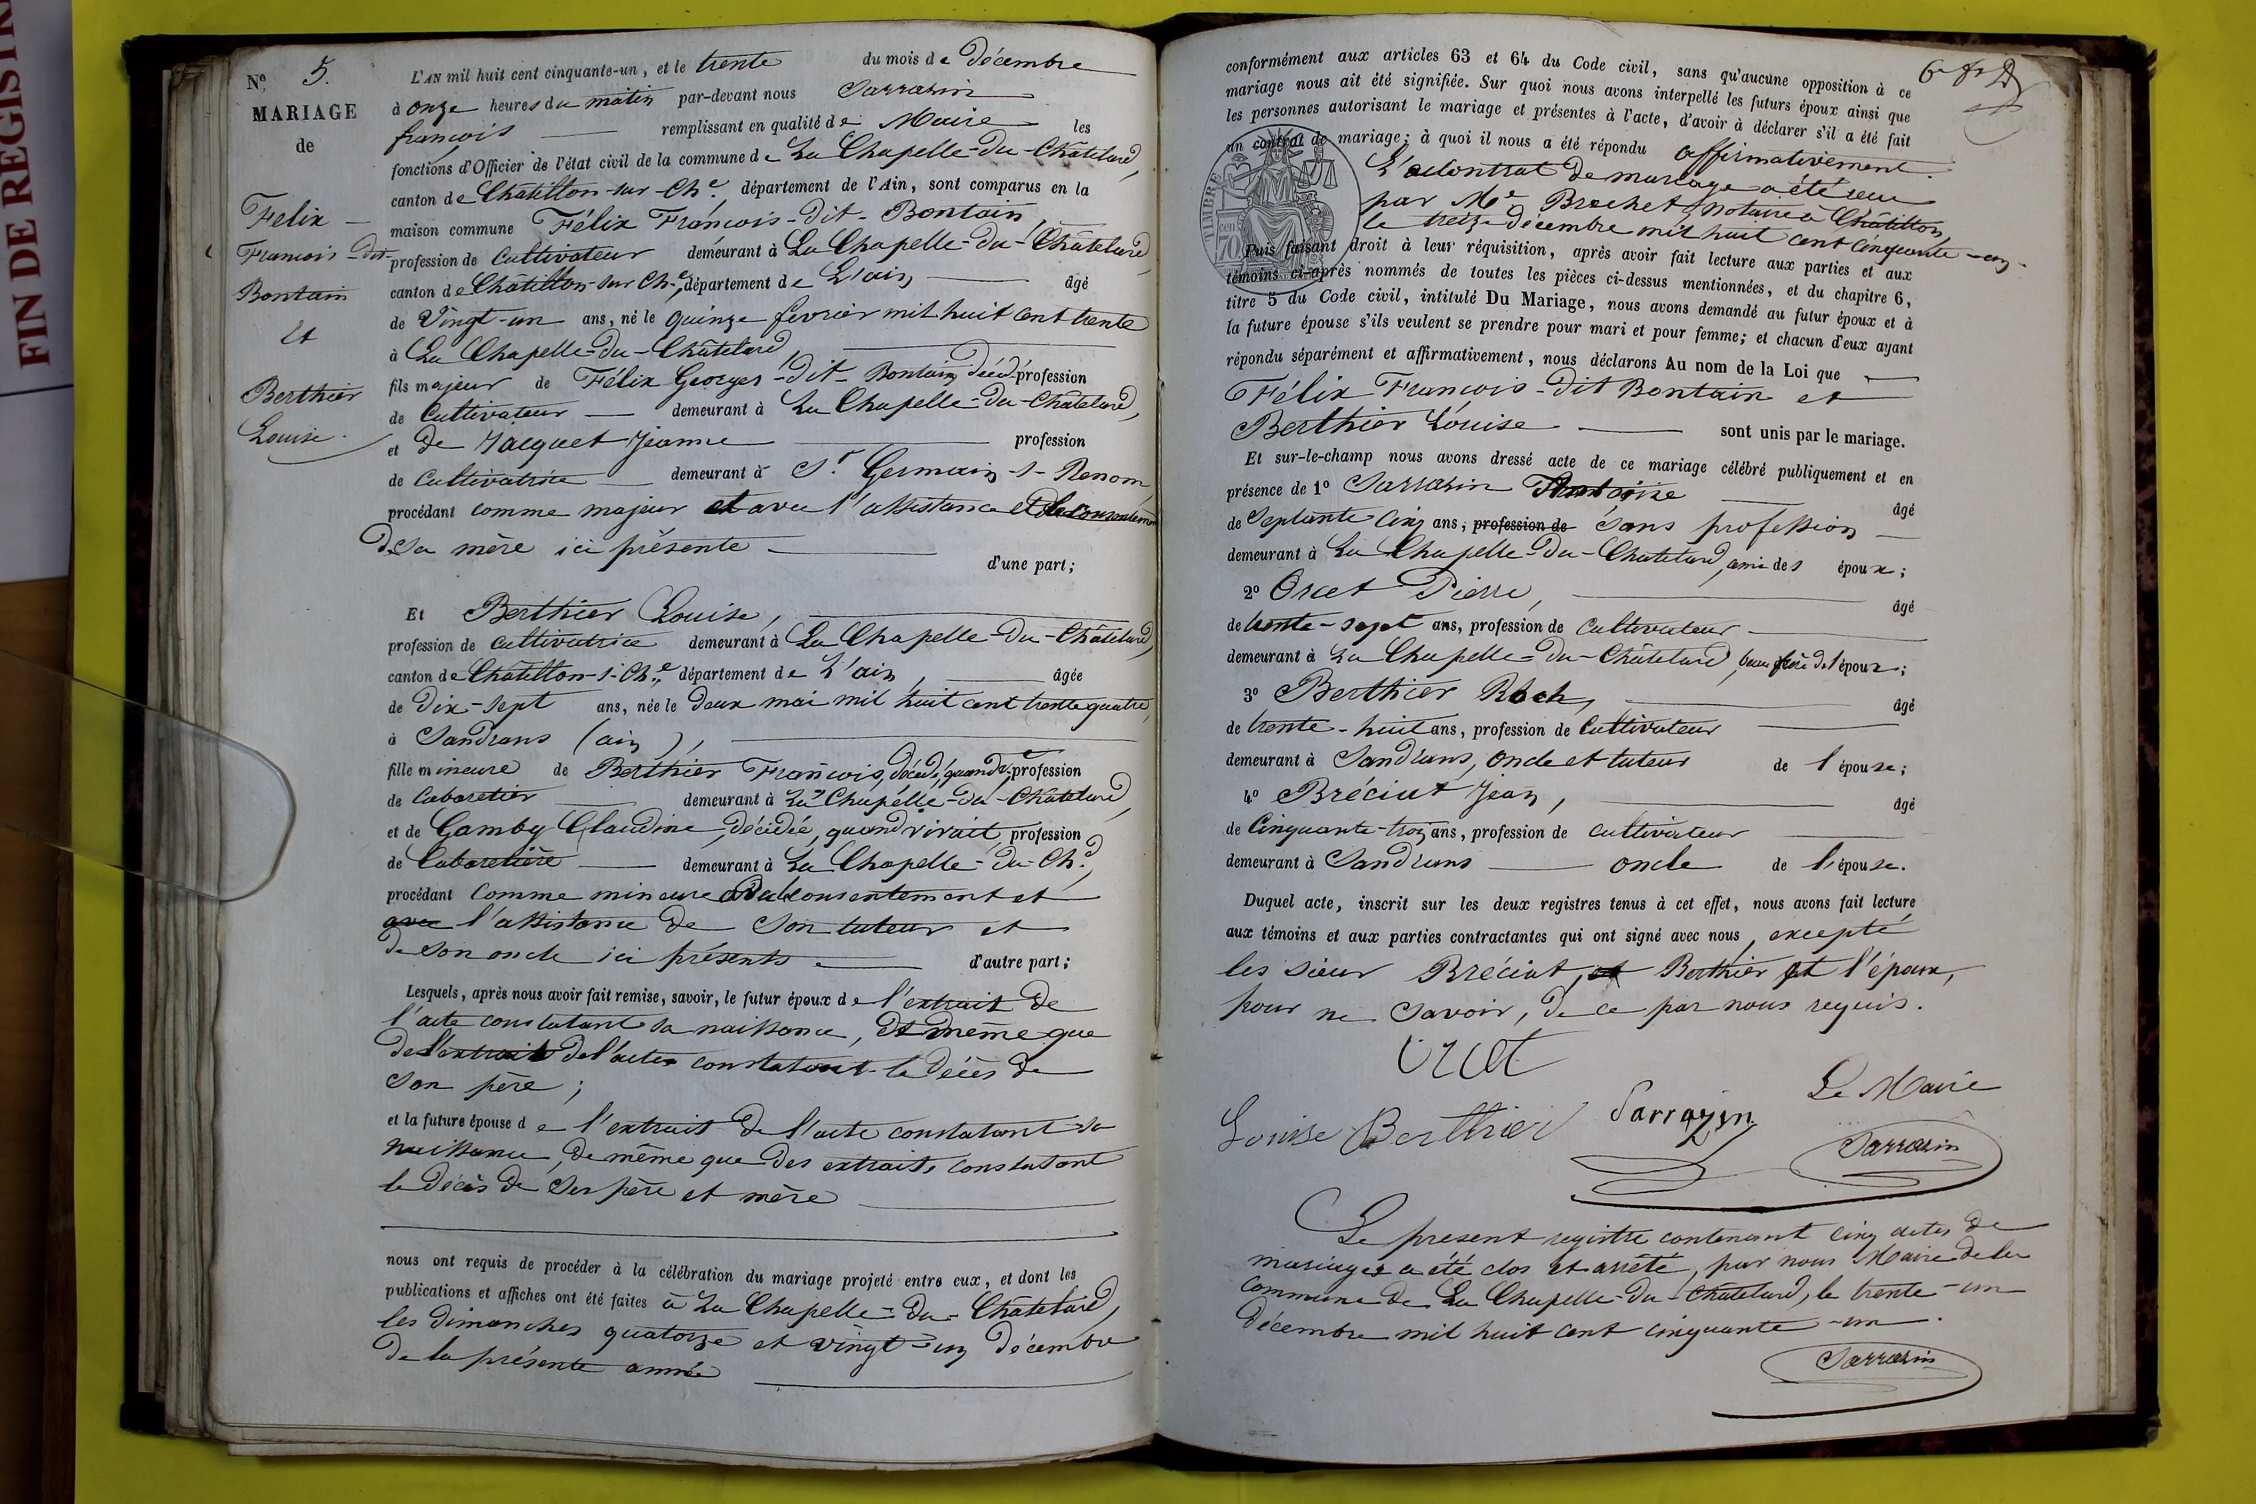 FIN DE REGISTR
N.º 5.
MARIAGE
de
Felix
Francois-dit-
Bontain
et
Berthier
Louise.
L'AN mil huit cent cinquante-un, et le trente du mois de Décembre
à onze heures du matin par-devant nous Sarrasin
françois remplissant en qualité de Maire les
fonctions d'Officier de l'état civil de la commune de La Chapelle-du-Châtelard,
canton de Châtillon-sur-Ch.e, département de l'Ain, sont comparus en la
maison commune Félix François-dit-Bontain,
profession de cultivateur demeurant à La Chapelle-du-Châtelard,
canton de Châtillon-sur Ch.e, département de L'ain, âgé
de Vingt-un ans, né le quinze fevrier mil huit cent trente
à La Chapelle-du-Châtelard,
fils majeur de Félix Georges-dit-Bontain décd. profession
de Cultivateur demeurant à La Chapelle-du-Châtelard,
et de Jacquet Jeanne profession
de Cultivatrice demeurant à St. Germain-s-Renom,
procédant comme majeur et avec l'assistance et le consentement
de sa mère ici présente d'une part;
Et Berthier Louise,
profession de cultivatrice demeurant à La Chapelle-du-Châtelard,
canton de Châtillon-s-Ch.e, département de L'ain, âgée
de Dix-sept ans, née le deux mai mil huit cent trente quatre,
à Sandrans (ain),
fille mineure de Berthier François, décédé, quand v. profession
de Cabaretier demeurant à La Chapelle-du-Châtelard,
et de Gamby Claudine, décédée, quand vivait, profession
de Cabaretière demeurant à La Chapelle-du-Ch.d,
procédant comme mineure consentement et
avec l'assistance de son tuteur et
de son oncle ici présents. d'autre part;
Lesquels, après nous avoir fait remise, savoir, le futur époux de l'extrait de
l'acte constatant sa naissance, de même que
de l'extrait de l'acte constatant le décès de
son père;
et la future épouse de l'extrait de l'acte constatant sa
naissance, de même que des extraits constatant
le décès de ses père et mère
nous ont requis de procéder à la célébration du mariage projeté entre eux, et dont les
publications et affiches ont été faites à La Chapelle-du-Châtelard,
les dimanches quatorze et vingt-un décembre
de la présente année
6e
conformément aux articles 63 et 64 du Code civil, sans qu'aucune opposition à ce
mariage nous ait été signifiée. Sur quoi nous avons interpellé les futurs époux ainsi que
les personnes autorisant le mariage et présentes à l'acte, d'avoir à déclarer s'il a été fait
un contrat de mariage; à quoi il nous a été répondu affirmativement.
contrat de mariage a été reçu
par Me Brochet, Notaire à Châtillon,
le treize décembre mil huit cent cinquante-un.
TIMBRE
70
Puis faisant droit à leur réquisition, après avoir fait lecture aux parties et aux
témoins ci-après nommés de toutes les pièces ci-dessus mentionnées, et du chapitre 6,
titre 5 du Code civil, intitulé Du Mariage, nous avons demandé au futur époux et à
la future épouse s'ils veulent se prendre pour mari et pour femme; et chacun d'eux ayant
répondu séparément et affirmativement, nous déclarons Au nom de la Loi que
Félix François-dit Bontain et
Berthier Louise sont unis par le mariage.
Et sur-le-champ nous avons dressé acte de ce mariage célébré publiquement et en
présence de 1º Sarrasin Antoine âgé
de Septante Cinq ans, profession de sans profession
demeurant à La Chapelle-du-Chatelard, ami des époux;
2º Orcet Pierre, âgé
de trente-sept ans, profession de Cultivateur
demeurant à La Chapelle-du-Châtelard, beau frère de l'époux;
3º Berthier Roch, âgé
de trente-huit ans, profession de Cultivateur
demeurant à Sandrans, oncle et tuteur de l'épouse;
4º Bréciat Jean, âgé
de Cinquante-trois ans, profession de cultivateur
demeurant à Sandrans oncle de l'épouse.
Duquel acte, inscrit sur les deux registres tenus à cet effet, nous avons fait lecture
aux témoins et aux parties contractantes qui ont signé avec nous, excepté
les sieur Bréciat, et Berthier et l'époux,
pour ne savoir, de ce par nous requis.
Orcet
Le Maire
Louise Berthier Sarrazin
Sarrasin
Le présent registre contenant cinq actes de
mariages a été clos et arrêté, par nous Maire de la
commune de La Chapelle-du-Châtelard, le trente-un
décembre mil huit cent cinquante-un.
Sarrasin